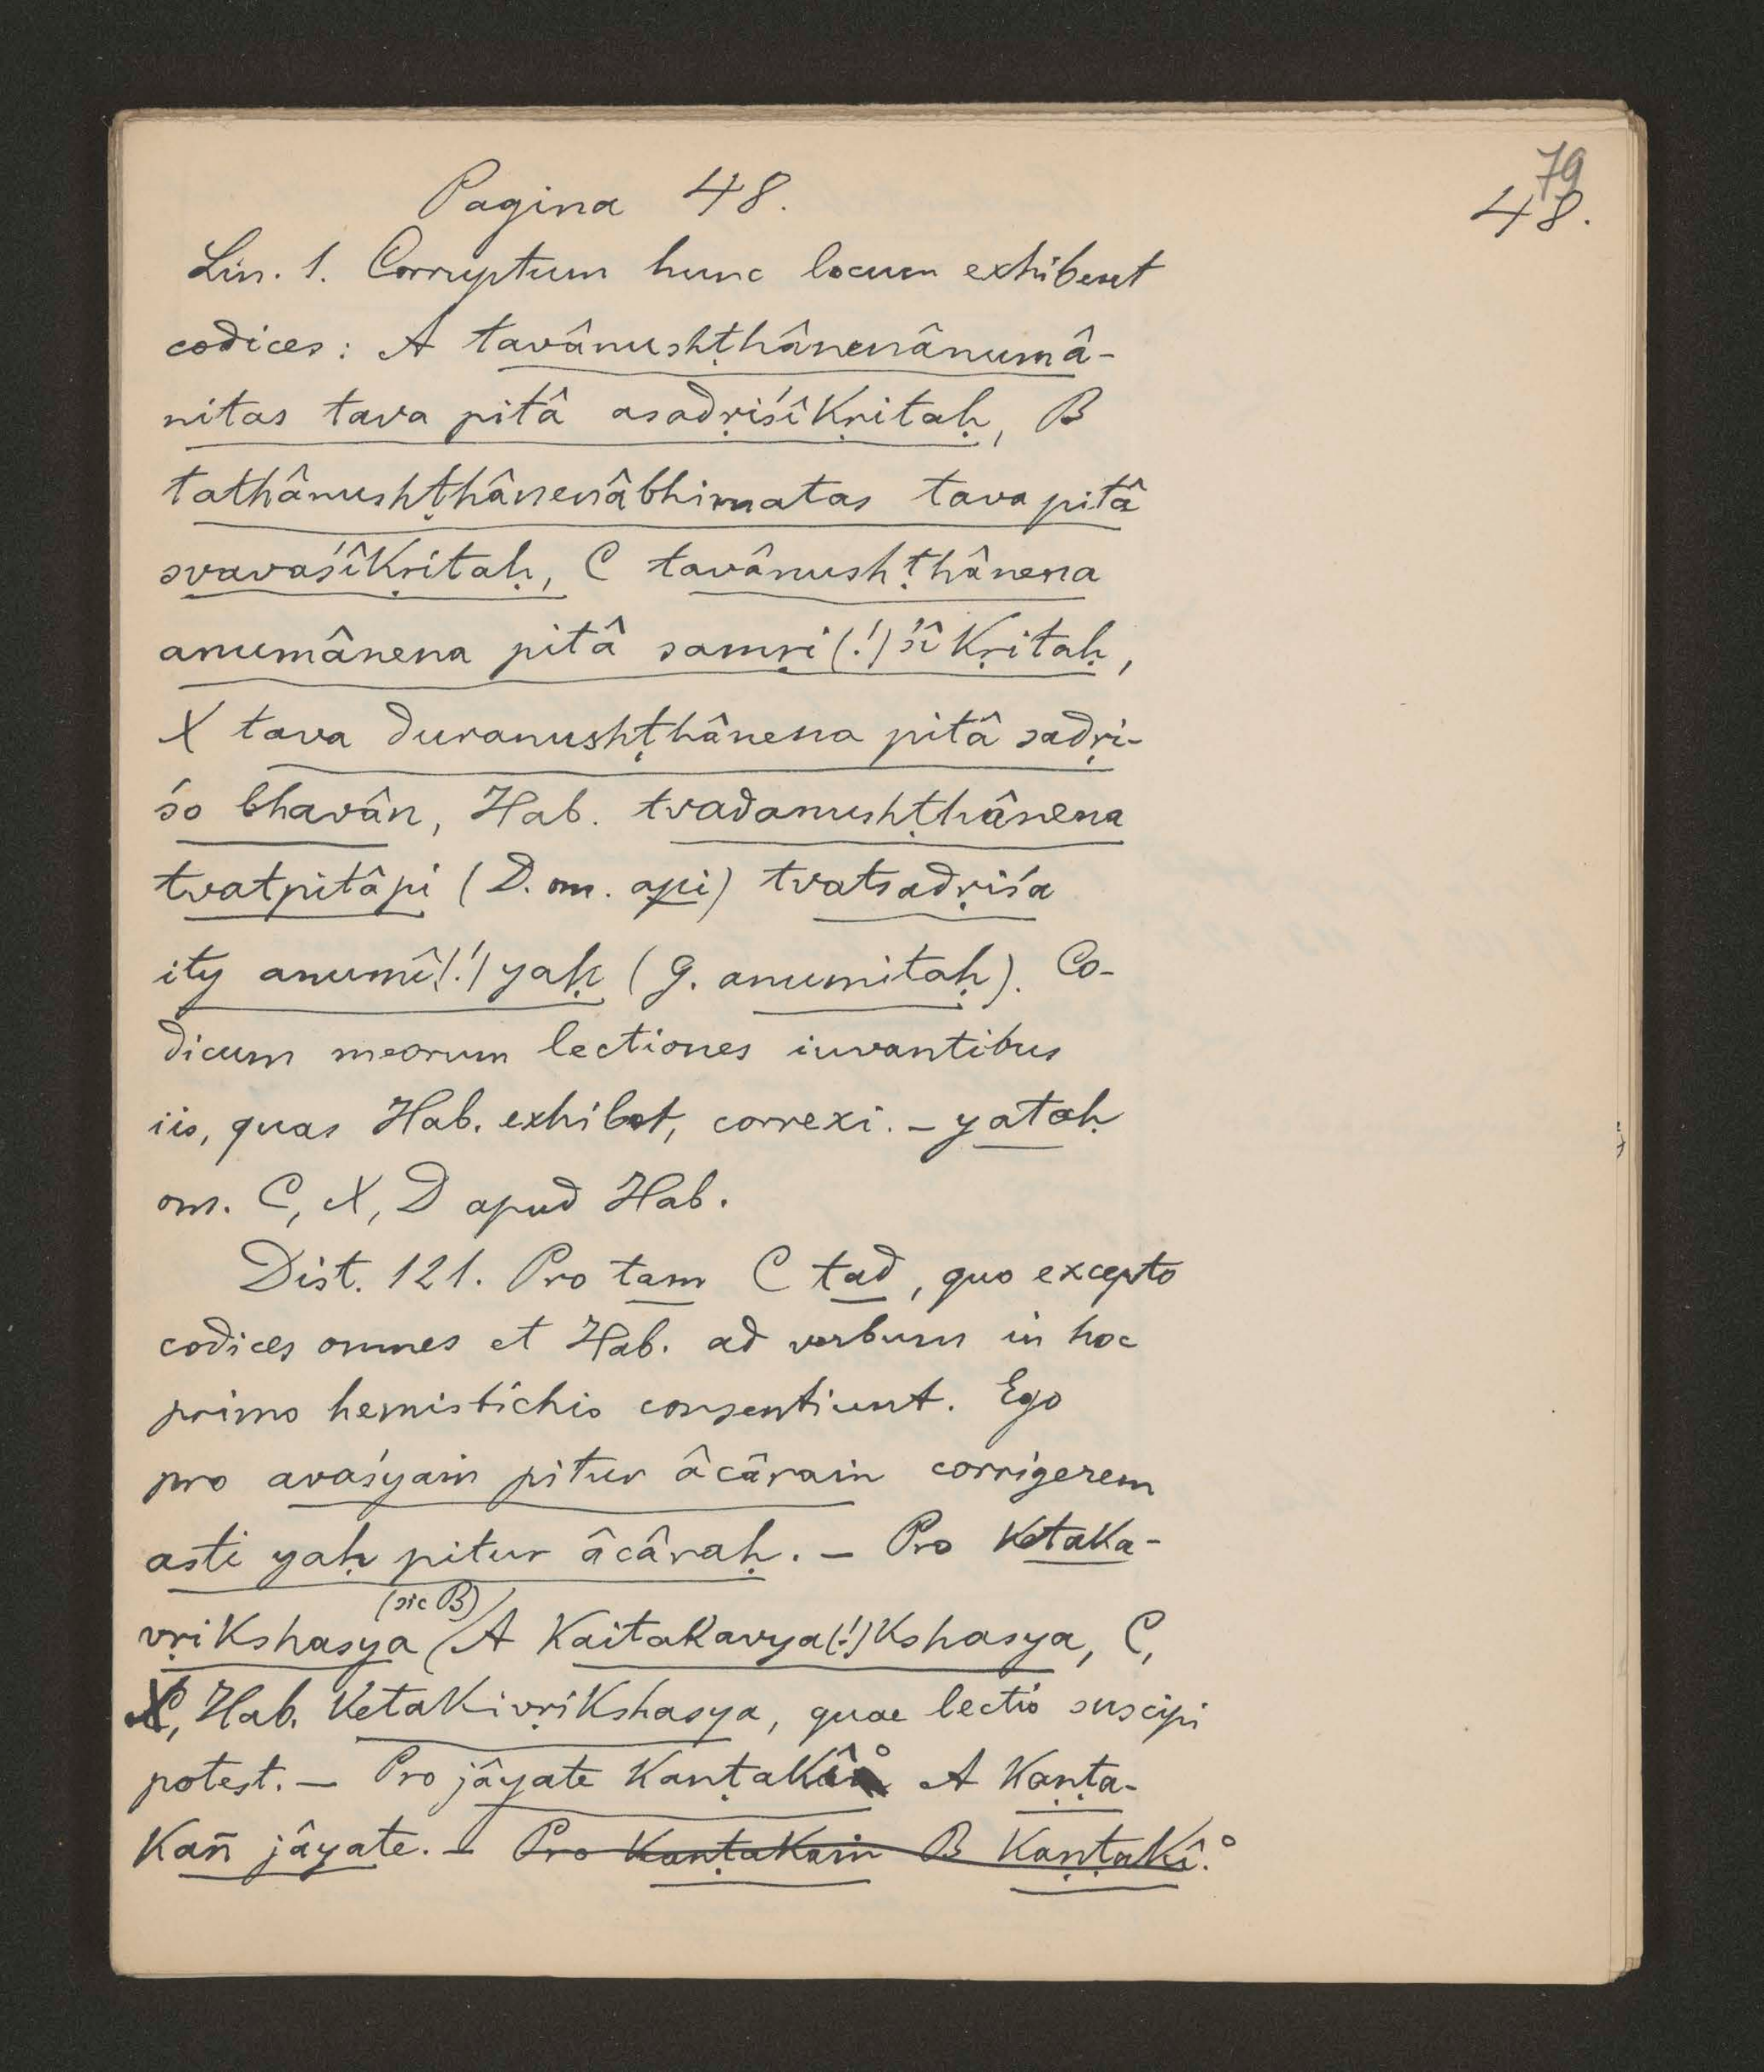 79
48.
Pagina 48.
Lin. 1. Corruptum hunc locum exhibent
codices: A tavânushṭhânenânumâ-
nitas tava pitâ asadṛiśîkṛitaḥ, B
tathânushṭhânenâbhimatas tava pitâ
svavaśîkṛitaḥ, C tavânushṭhânena
anumânena pitâ samṛi(!)śîkṛitaḥ,
X tava duranushṭhânena pitâ sadṛi-
śo bhavân, Hab. tvadanushṭhânena
tvatpitâpi (D. om. api) tvatsadṛiśa
ity anumî(!)yaḥ (G. anumitaḥ). Co-
dicum meorum lectiones iuvantibus
iis, quas Hab. exhibet, correxi. – yataḥ
om. C, X, D apud Hab.
Dist. 121. Pro tam C tad, quo excepto
codices omnes et Hab. ad verbum in hoc
primo hemistichio consentiunt. Ego
pro avaśyaṁ pitur âcâraṁ corrigerem
asti yaḥ pitur âcâraḥ. – Pro ketaka-
(sic B)
vṛikshasya A kaitakavya(!)kshasya, C,
X, Hab. ketakivṛikshasya, quae lectio suscipi
potest. – Pro jâyate kanṭakî° A kaṇṭa-
kañ jâyate. – Pro kanṭakaṁ B kaṇṭakî.°